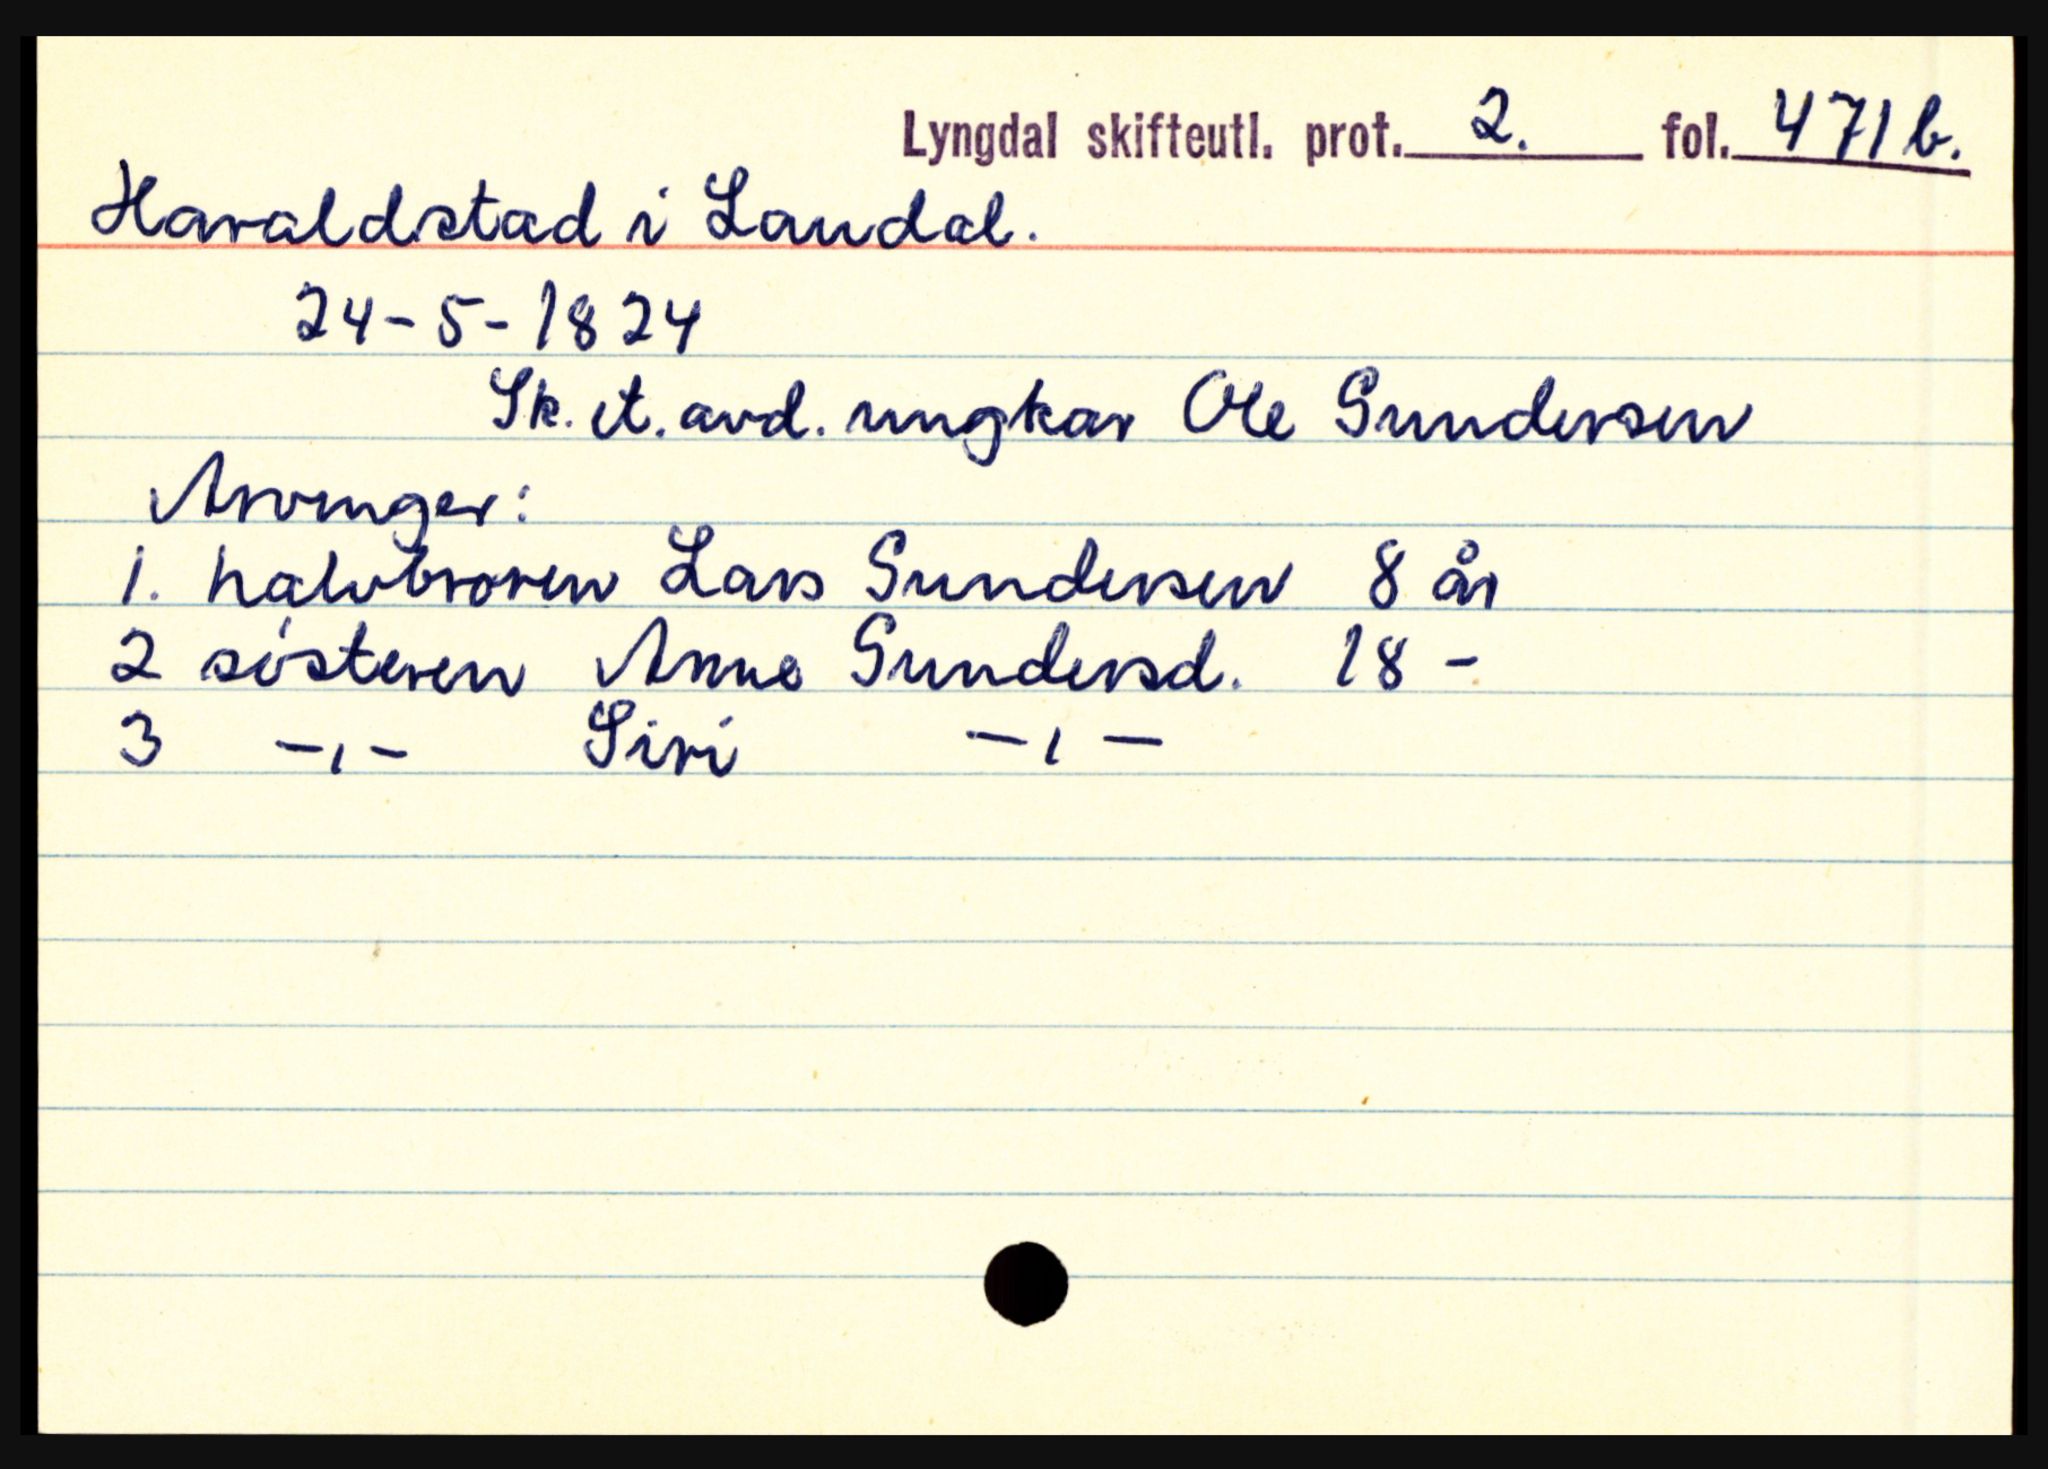 Lyngdal skifteutl. prot. 2. fol. 471 b.
Haraldstad i Laudal.
24-5-1824
Sk. et. avd. ungkar Ole Gundersen
Arvinger:
1. halvbroren Lars Gundersen 8 år
2 søsteren Anne Gundersd. 18 -
3 -,- Siri -,-